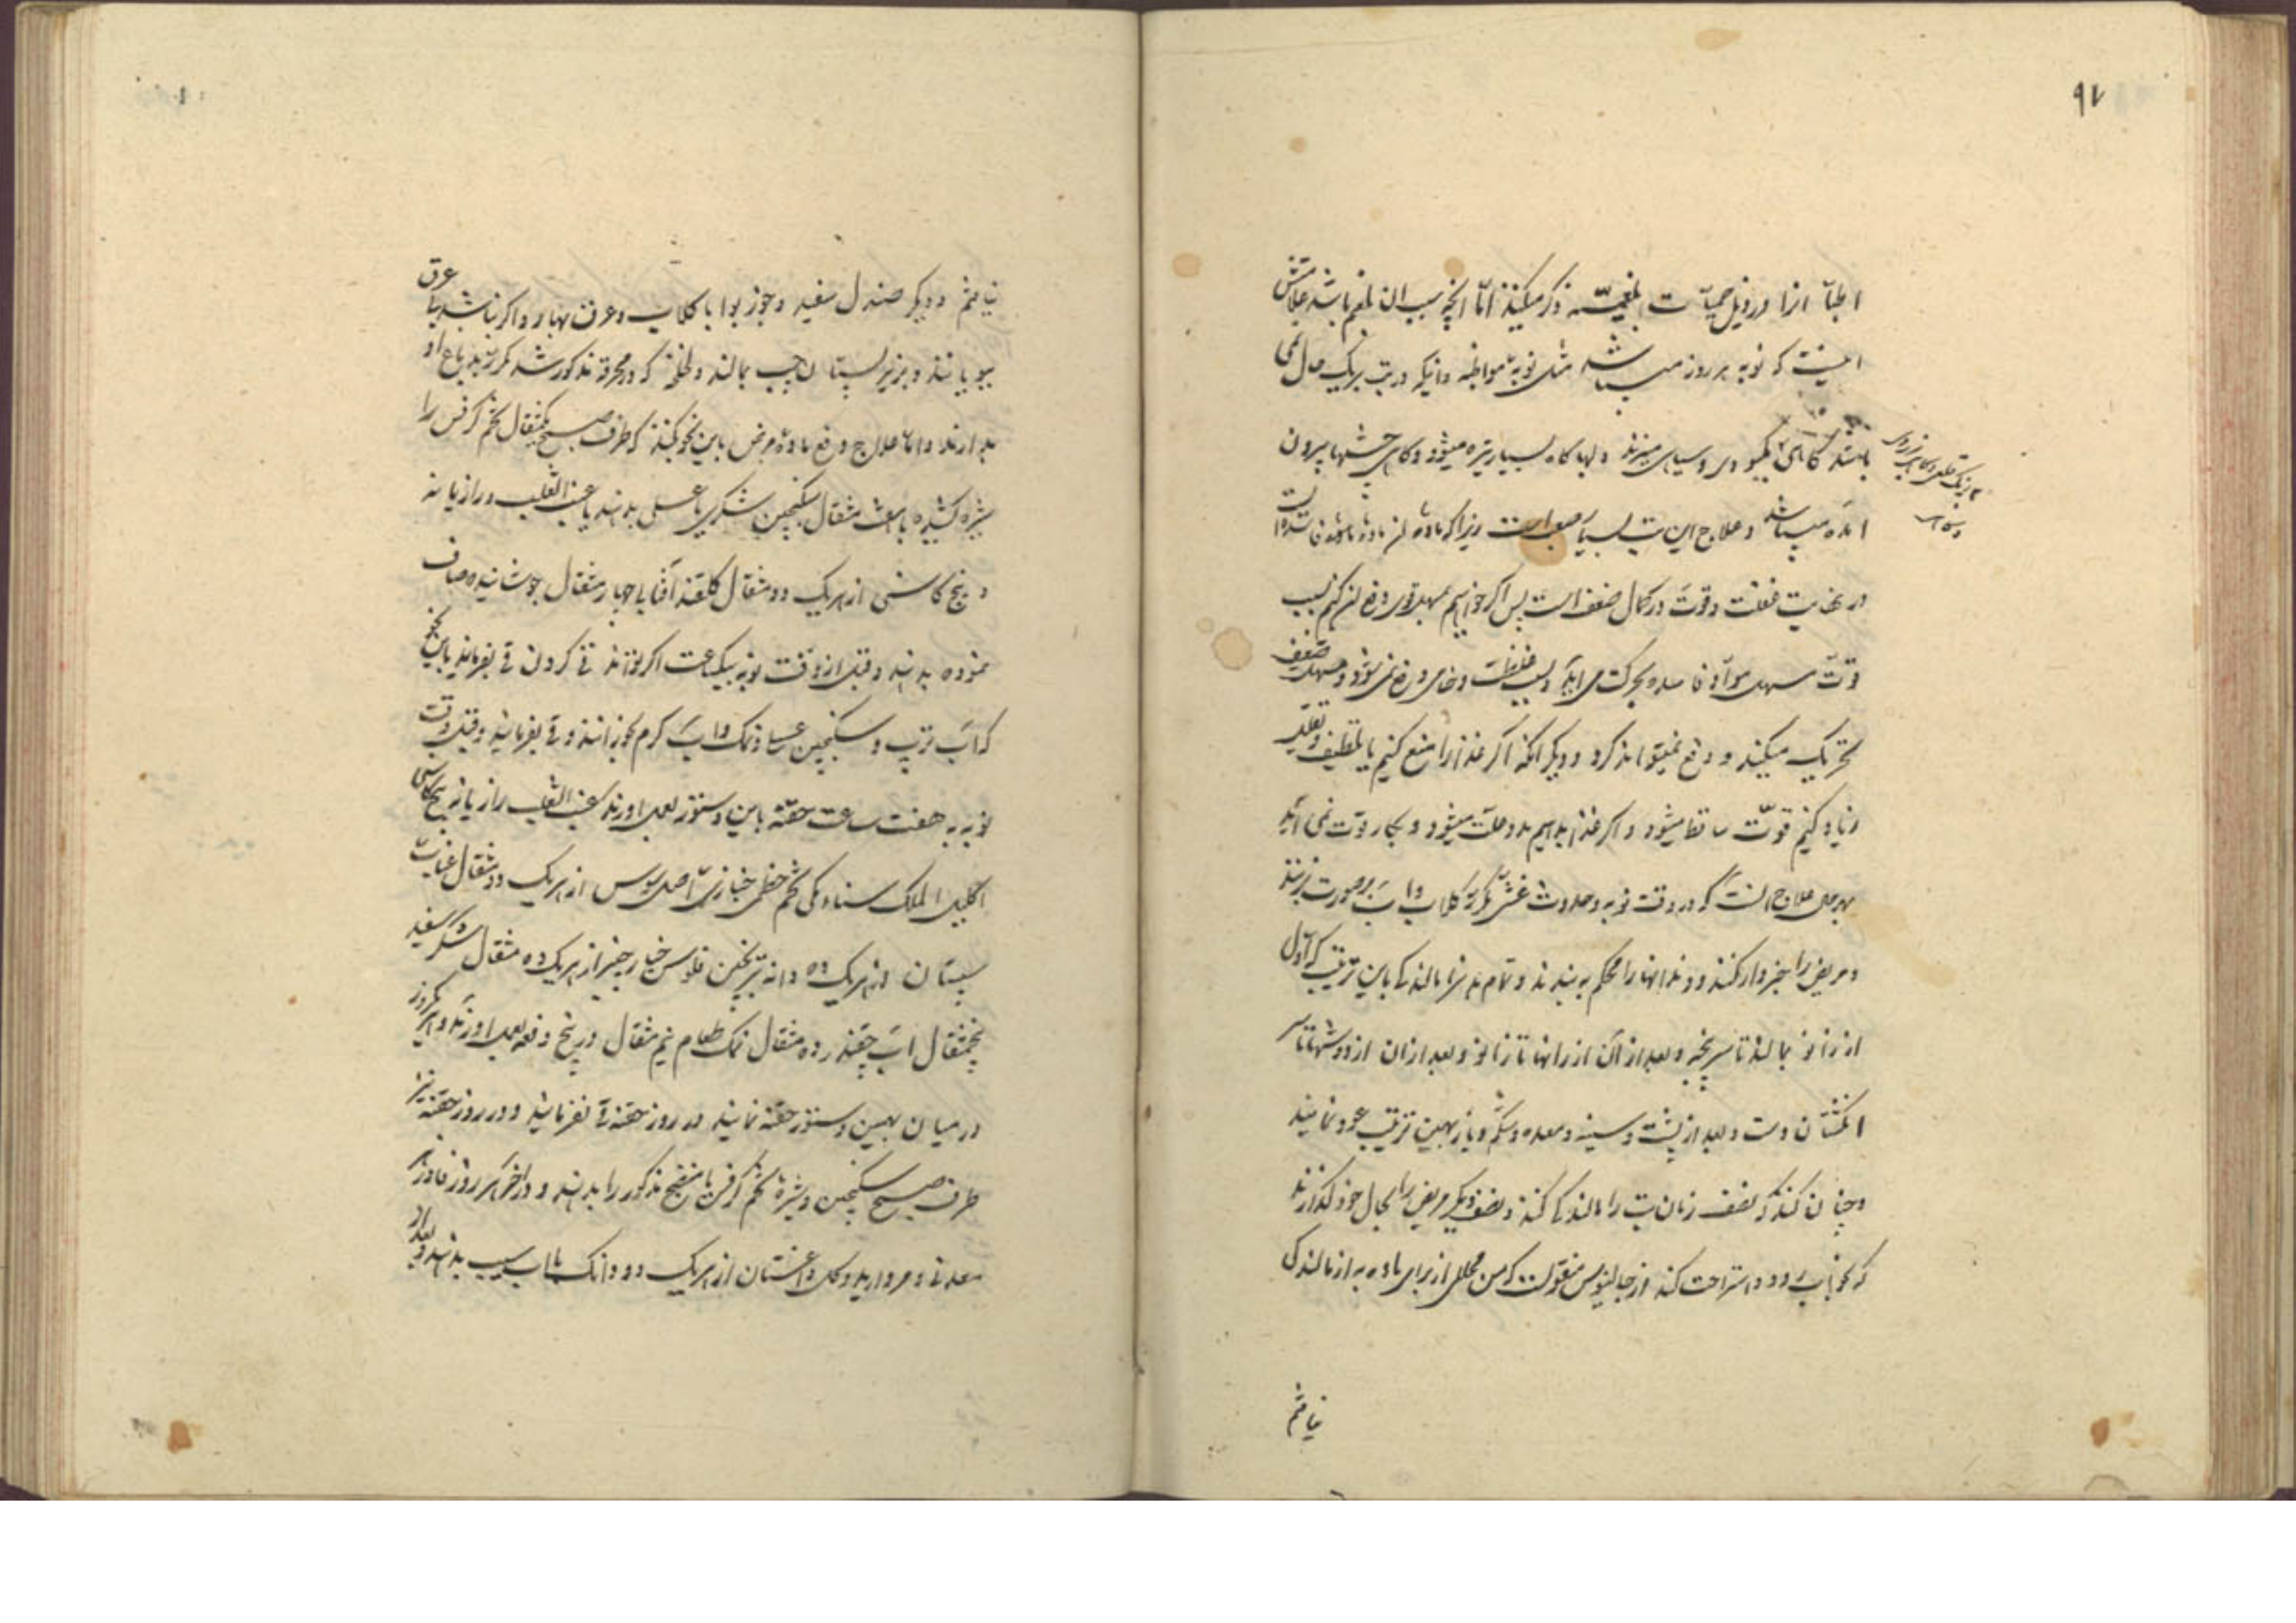 ۹۷
اطبّا انرا در ذیل حمیّات بلغمیّه ذکر میکنند امّا انچه سبب ان بلغم باشد علامتش
اینست که نوبه هر روز میباشد مثل نوبهٔ مواظبه وانیکه درتب بریک حال نمی
باشد گاهی بکبودی وسیاهی میزند ولبها کاه بسیار تیره میشود وکاهی چشمها بیرون
امده میباشد وعلاج این تب بسیار صعب است زیرا که مادهٔ
در نهایت غلظت وقوّت در کمال ضعف است پس اکر خواهیم بمسهل قوی دفع ان کنیم بسبب
قوّت مسهل موادّ فاسده بحرکت می اید وبسبب غلظت وخامی دفع نمی شود ومسهل ضعیف
تحریک میکند و دفع نمیتواند کرد و دیکر انکه اکر غذا را منع کنیم یا تلطیف وتقلیل
زیاد کنیم قوّت ساقط میشود و اکر غذا بدهیم مدد علّت میشود وبکار قوّت نمی اید
بهرحال علاج انست که در وقت نوبه وحدوث غش کلاب واب برصورت زنند
ومریض را خبردار کنند ورانهارا محکم به بندند وتمام بدنرا مالند کی باین ترتیب که اوّل
از زانو بمالند تا سر پنجه وبعد از آن از رانها تا زانو وبعد ازان از دوشها تا سر
انکشتان دست وبعد از پشت وسینه ومعده وشکم وباز بهمین ترتیب عود نمایند
وچنان کنند که نصف زمان تب را مالندکی کنند ونصف دیکر مریض را بحال خود کذارند
که بخواب رود واستراحت کند از جالینوس منقولست که من محللی از برای ماده به از مالندکی
نیافتم
نیافتم ودیکر صندل سفید وجوز بوا با کلاب وعرق بهار واکر نباشد با عرق
ببویانند وبزیر پستان چپ بمالند که درمحرقه مذکور شد مکرر بدماغ او
بدارند وامّا علاج دفع مادهٔ مرض باین نحو کنند که طرف صبح یکمثقال تخم کرفس را
شیره کشیده با هشت مثقال سکنجبین شکری یا عسلی بدهند یا عنب الثعلب ورازیانه
وبیخ کاسنی ازهریک دو مثقال کلقند آفتابی چهار مثقال جوشانیده صاف
نموده بدهند وقبل ازوقت نوبه بیکساعت اکر تواند قی کردن قی بفرمایند باین نحو
که آب ترب وسکنجبین عسلی ونمک واب کرم بخورانند وقی بفرمایند وقبل وقت
نوبه به هفت ساعت حقنه باین دستور بعمل اورند عنب الثعلب رازیانه بیخ کاسنی
اکلیل الملک سناء مکی تخم خطمی خبازی اصل سوس از هریک دو مثقال عناب
سپستان از هریک ده دانه ترنجبین فلوس خیار چنبر از هریک ده مثقال شکر سفید
پنجمثقال اب چقندر ده مثقال نمک طعام نیم مثقال در پنج دفعه بعمل اورند وهر یکروز
درمیان بهمین دستور حقنه نمایند در روز حقنه قی نفرمایند ودر روز حقنه نیز
طرف صبح سکنجبین وشیرهٔ تخم کرفس یا منضج مذکور را بدهند ودراخر هر روز فادزهر
معدنی ومروارید وکل داغستان از هریک دو دانک بااب سیب بدهند وبعد از